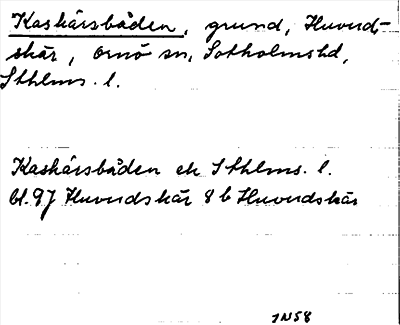 Kaskärsbåden, grund, Huvud-
skär, Ornö sn, Sotholms hd,
Sthlms. l.
Kaskärsbåden ek Sthlms. l.
bl. 97 Huvudskär 8 b Huvudskär
IN58